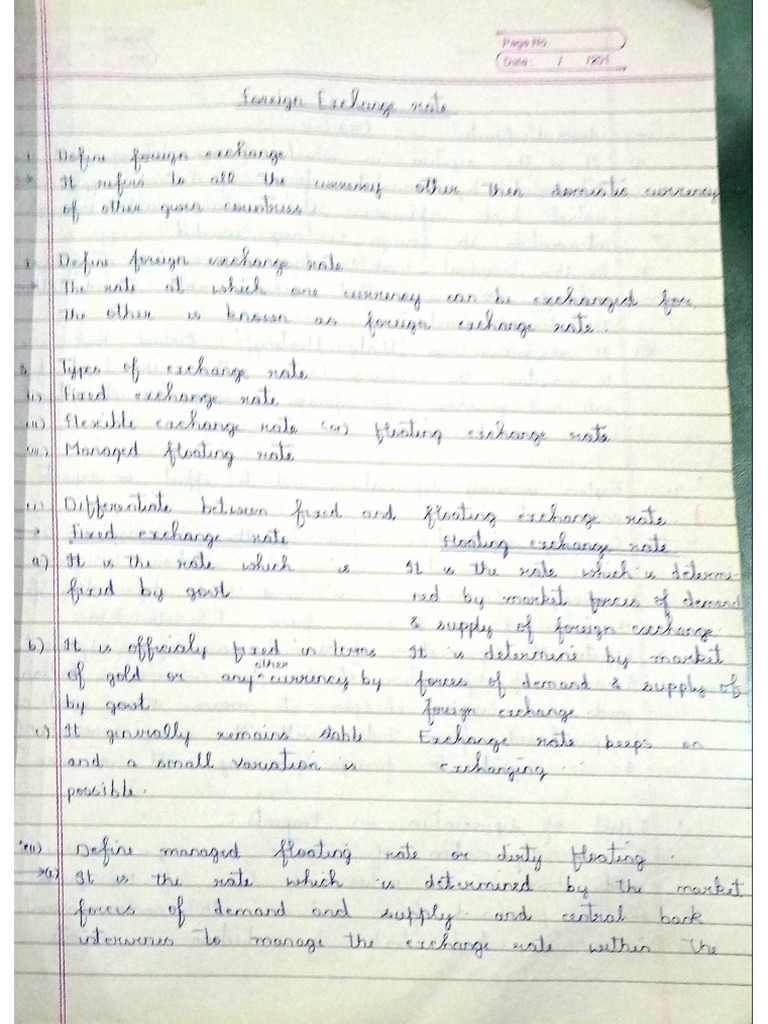 Page No.
Date: / /201
Foreign Exchange rate
1. Define foreign exchange
→ It refers to all the currency other then domestic currency
of other given countries
Define foreign exchange rate
→ The rate at which one currency can be exchanged for
the other is known as foreign exchange rate.
3 Types of exchange rate
i) Fixed exchange rate
ii) Flexible exchange rate (or) floating exchange rate
iii) Managed floating rate
Differentiate between fixed and floating exchange rate
→ Fixed exchange rate Floating exchange rate
a) It is the rate which is It is the rate which is determi-
fixed by govt. ned by market forces of demand
& supply of foreign exchange.
b) It is officialy fixed in terms It is determine by market
of gold or any other currency by forces of demand & supply of
by govt foreign exchange
c) It generally remains stable Exchange rate keeps on
and a small variation is exchanging.
possible.
Define managed floating rate or dirty floating.
It is the rate which is determined by the market
forces of demand and supply and central bank
intervenes to manage the exchange rate within the